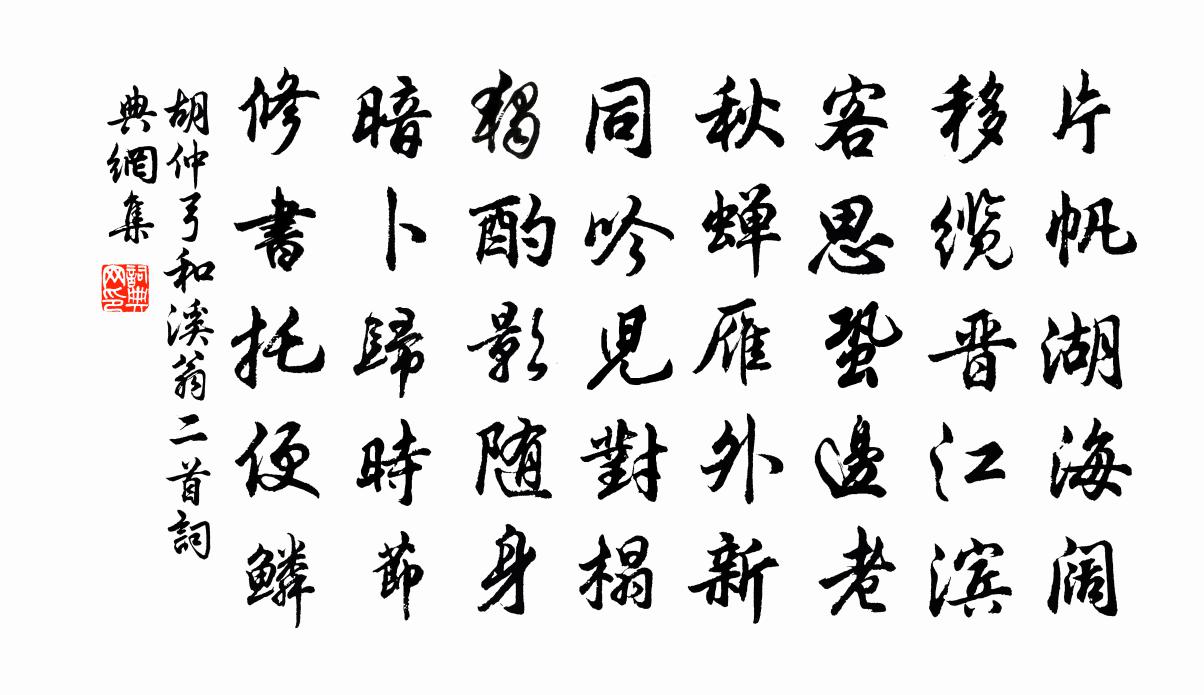 片帆湖海阔
移缆晋江滨
客思蛩邊老
秋蝉雁外新
同吟児對榻
独酌影随身
暗卜歸時節
修書托便鱗
胡仲弓和溪翁二首詞
典網集
詞典网印